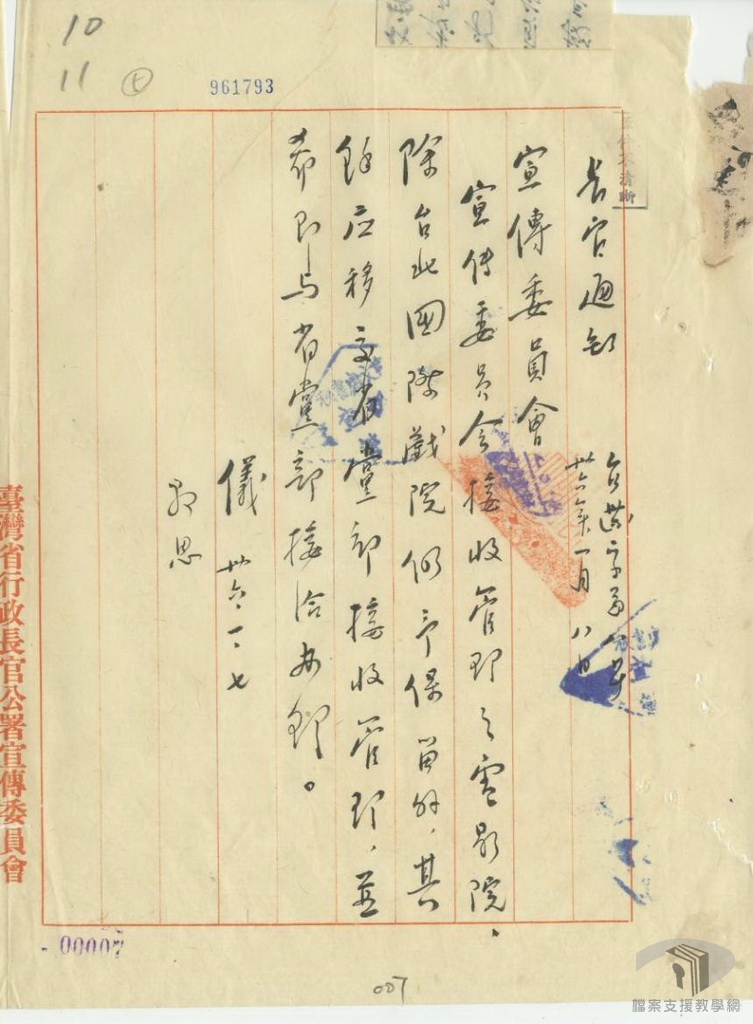 10
11
七
961793
長官通知
宣傳委員會
卅六年一月八日
宣传委員会接收管理之電影院、
除台北國際戲院仍予保留外，其
餘应移交省黨部接收管理，並
希即与省黨部接洽办理。
儀 卅六、一、七
臺灣省行政長官公署宣傳委員會
00007
007
檔案支援教學網